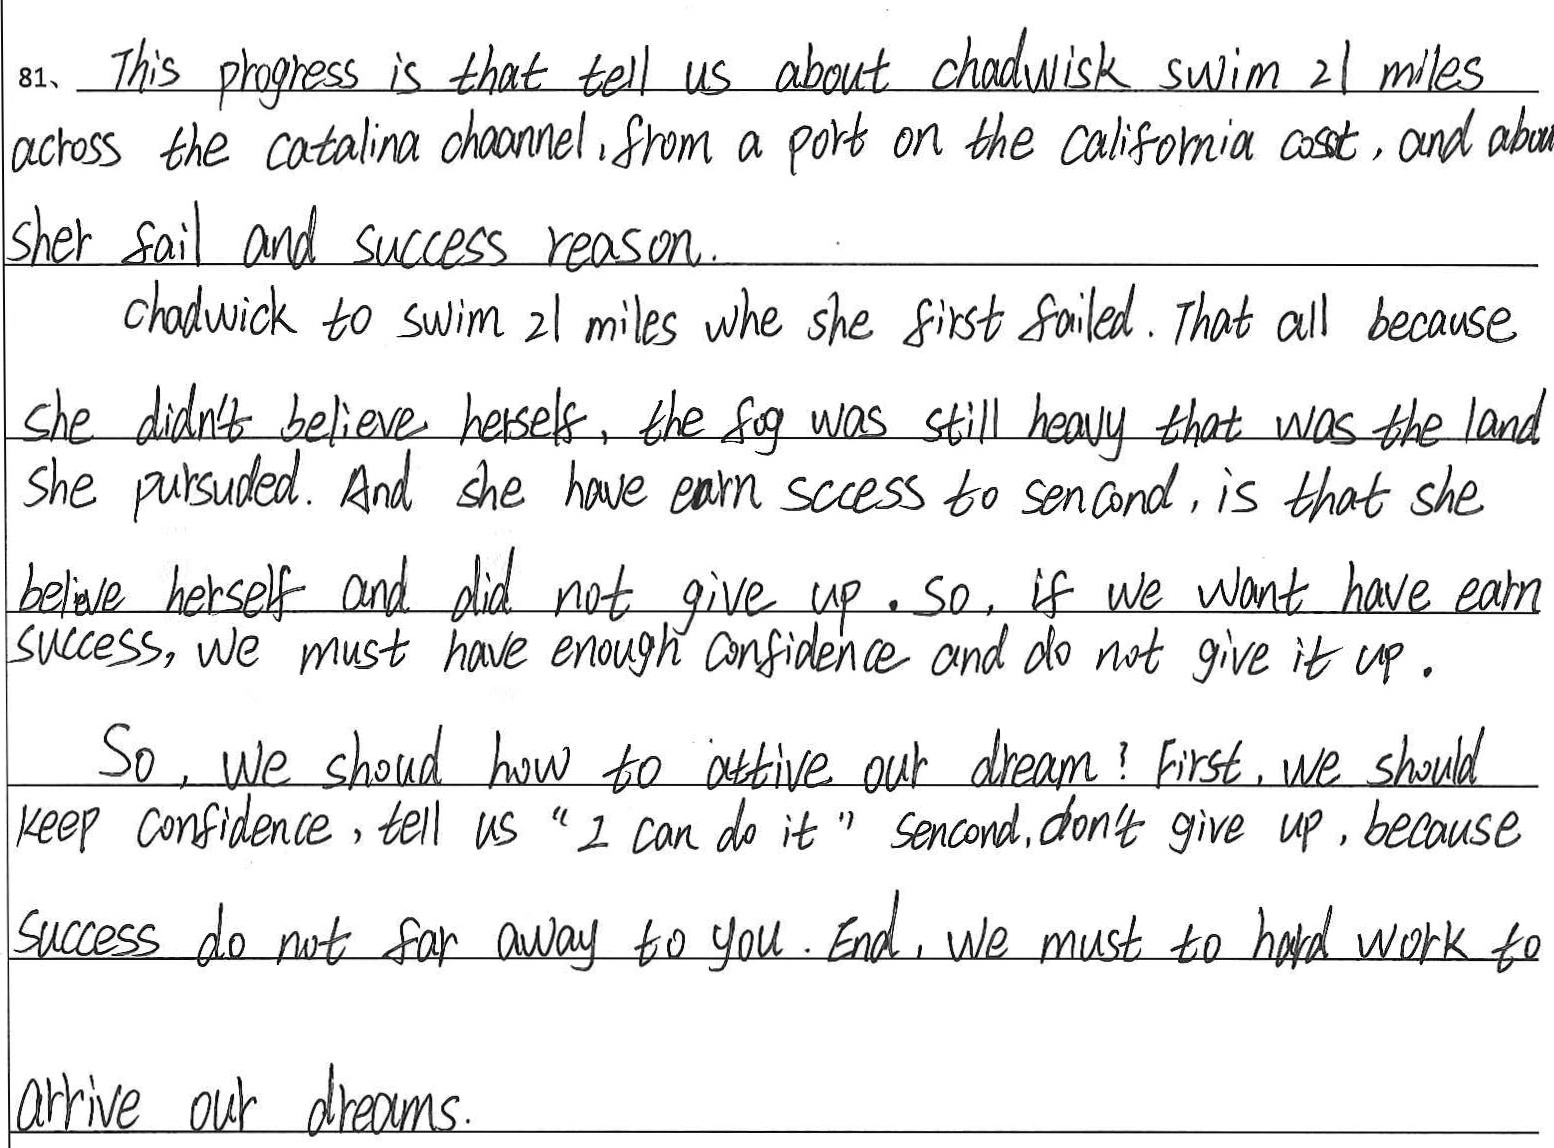 81、 This progress is that tell us about chadwisk swim 21 miles
across the catalina chaannel, from a port on the california cosst, and abou
sher fail and success reason.
chadwick to swim 21 miles whe she first failed. That all because
she didn't believe herself, the fog was still heavy that was the land
she pursuded. And she have earn sccess to sencond, is that she
belive herself and did not give up. So, if we want have earn
success, we must have enough confidence and do not give it up.
So, we shoud how to attive our dream? First, we should
keep confidence, tell us "I can do it" sencond, don't give up, because
success do not far away to you. End, we must to hard work to
arrive our dreams.